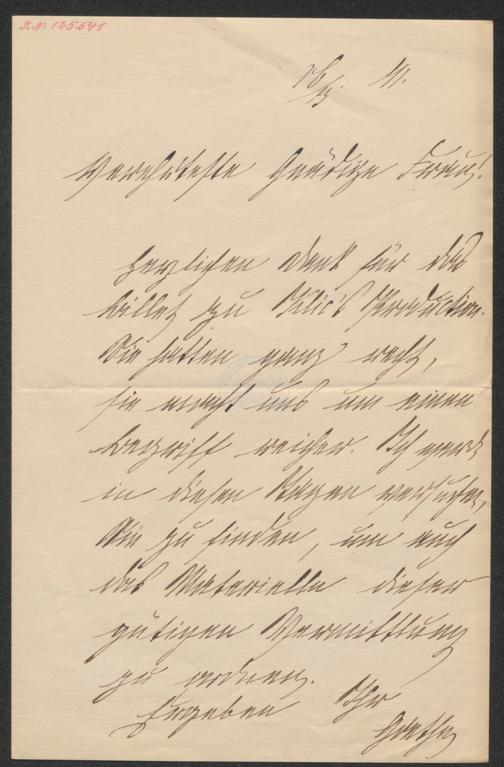 I. N. 125.541
Verehrteste Gnädige Frau!
Herzlichen Dank für das
Billet zu Production.
Sie hatten ganz recht,
sie macht uns um einen
Begriff reicher. Ich werde
in diesen Tagen versuchen,
Sie zu finden, um auch
das Materielle dieser
gütigen Vermittlung
zu ordnen.
Ergeben Ihr